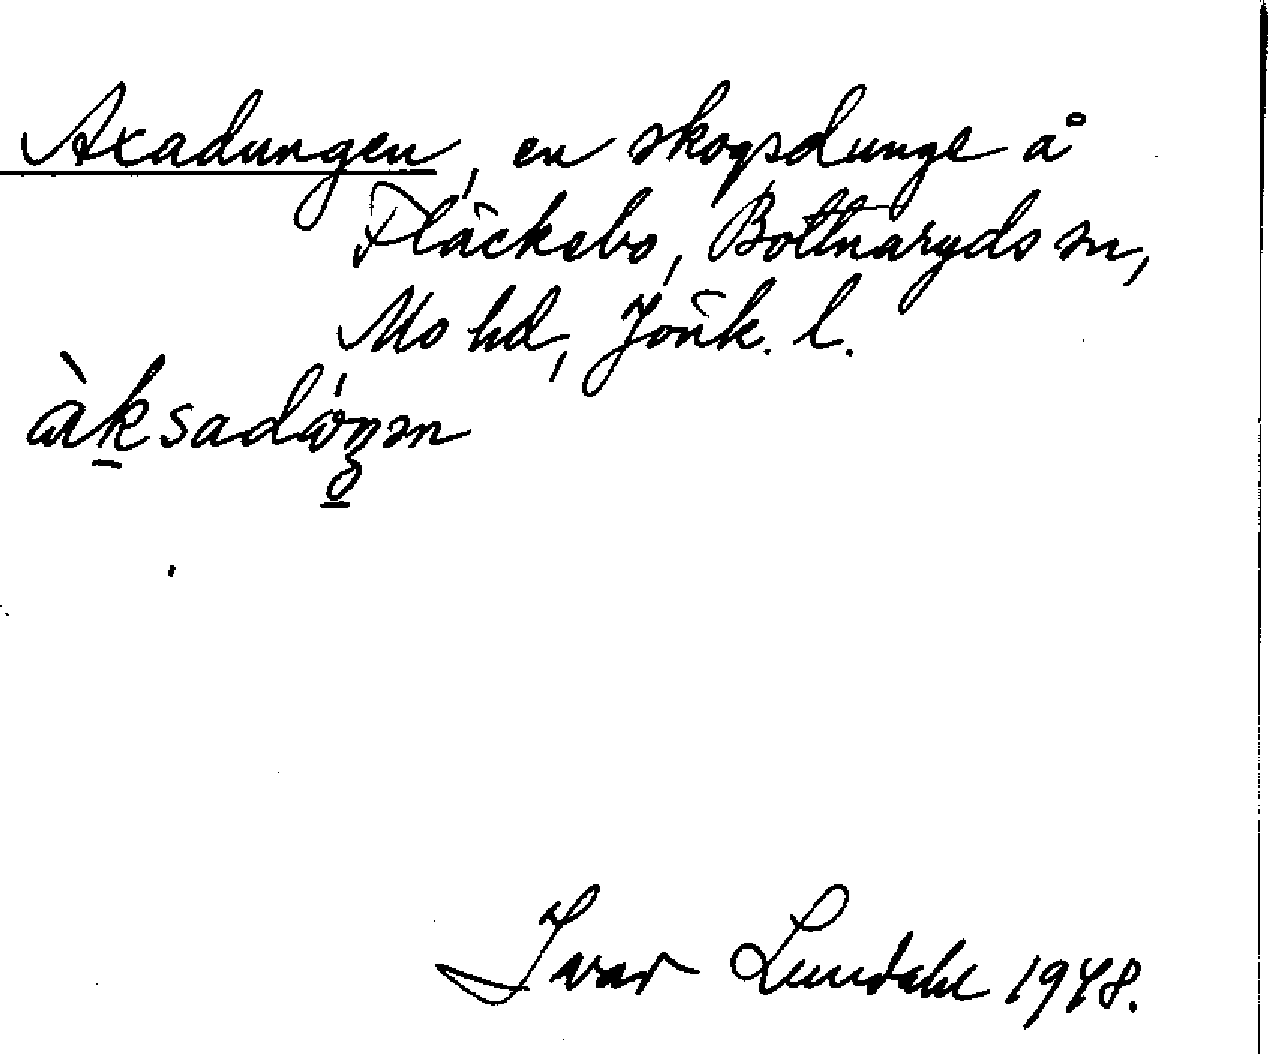 Axadungen, en skogsdunge å
Fläckebo, Bottnaryds sn,
Mo hd, Jönk. l.
Ivar Lundahl 1948.